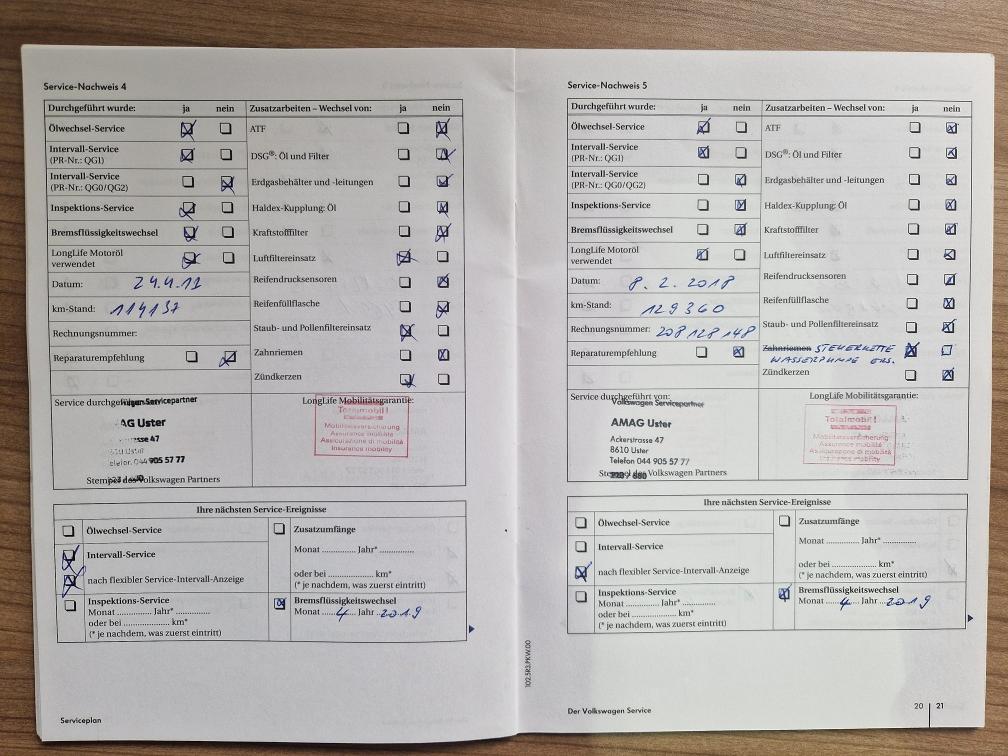 Service-Nachweis 4
Durchgeführt wurde: ja nein Zusatzarbeiten – Wechsel von: ja nein
Ölwechsel-Service ATF
Intervall-Service
(PR-Nr.: QG1) DSG®: Öl und Filter
Intervall-Service
(PR-Nr.: QG0/QG2) Erdgasbehälter und -leitungen
Inspektions-Service Haldex-Kupplung: Öl
Bremsflüssigkeitswechsel Kraftstofffilter
LongLife Motoröl
verwendet Luftfiltereinsatz
Datum: 24.4.17 Reifendrucksensoren
km-Stand: 114137 Reifenfüllflasche
Rechnungsnummer: Staub- und Pollenfiltereinsatz
Reparaturempfehlung Zahnriemen
Zündkerzen
Service durchgeführt von: Servicepartner LongLife Mobilitätsgarantie:
Totalmobil!
Mobilitätsversicherung
Assurance mobilité
Assicurazione di mobilità
Insurance mobility
AG Uster
sse 47
8610 Uster
Telefon 044 905 57 77
Stempel des Volkswagen Partners
Ihre nächsten Service-Ereignisse
Ölwechsel-Service Zusatzumfänge
Intervall-Service Monat ............ Jahr* ............
nach flexibler Service-Intervall-Anzeige oder bei ............ km*
(* je nachdem, was zuerst eintritt)
Inspektions-Service Bremsflüssigkeitswechsel
Monat ............ Jahr* ............ Monat 4 Jahr 2019
oder bei ............ km*
(* je nachdem, was zuerst eintritt)
Serviceplan
Service-Nachweis 5
Durchgeführt wurde: ja nein Zusatzarbeiten – Wechsel von: ja nein
Ölwechsel-Service ATF
Intervall-Service
(PR-Nr.: QG1) DSG®: Öl und Filter
Intervall-Service
(PR-Nr.: QG0/QG2) Erdgasbehälter und -leitungen
Inspektions-Service Haldex-Kupplung: Öl
Bremsflüssigkeitswechsel Kraftstofffilter
LongLife Motoröl
verwendet Luftfiltereinsatz
Datum: 8.2.2018 Reifendrucksensoren
km-Stand: 129360 Reifenfüllflasche
Rechnungsnummer: 208128148 Staub- und Pollenfiltereinsatz
Reparaturempfehlung Zahnriemen STEUERKETTE
WASSERPUMPE ERS.
Zündkerzen
Service durchgeführt von: LongLife Mobilitätsgarantie:
Volkswagen Servicepartner
Totalmobil!
Mobilitätsversicherung
Assurance mobilité
Assicurazione di mobilità
Insurance mobility
AMAG Uster
Ackerstrasse 47
8610 Uster
Telefon 044 905 57 77
Stempel des Volkswagen Partners
Ihre nächsten Service-Ereignisse
Ölwechsel-Service Zusatzumfänge
Intervall-Service Monat ............ Jahr* ............
nach flexibler Service-Intervall-Anzeige oder bei ............ km*
(* je nachdem, was zuerst eintritt)
Inspektions-Service Bremsflüssigkeitswechsel
Monat ............ Jahr* ............ Monat 4 Jahr 2019
oder bei ............ km*
(* je nachdem, was zuerst eintritt)
102.5R3.PKW.00
Der Volkswagen Service 20 21